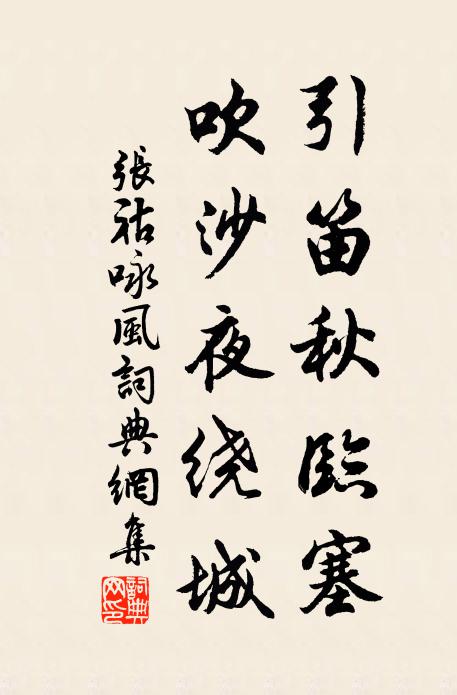 引笛秋臨塞
吹沙夜绕城
張祜咏風詞典網集
詞典网印